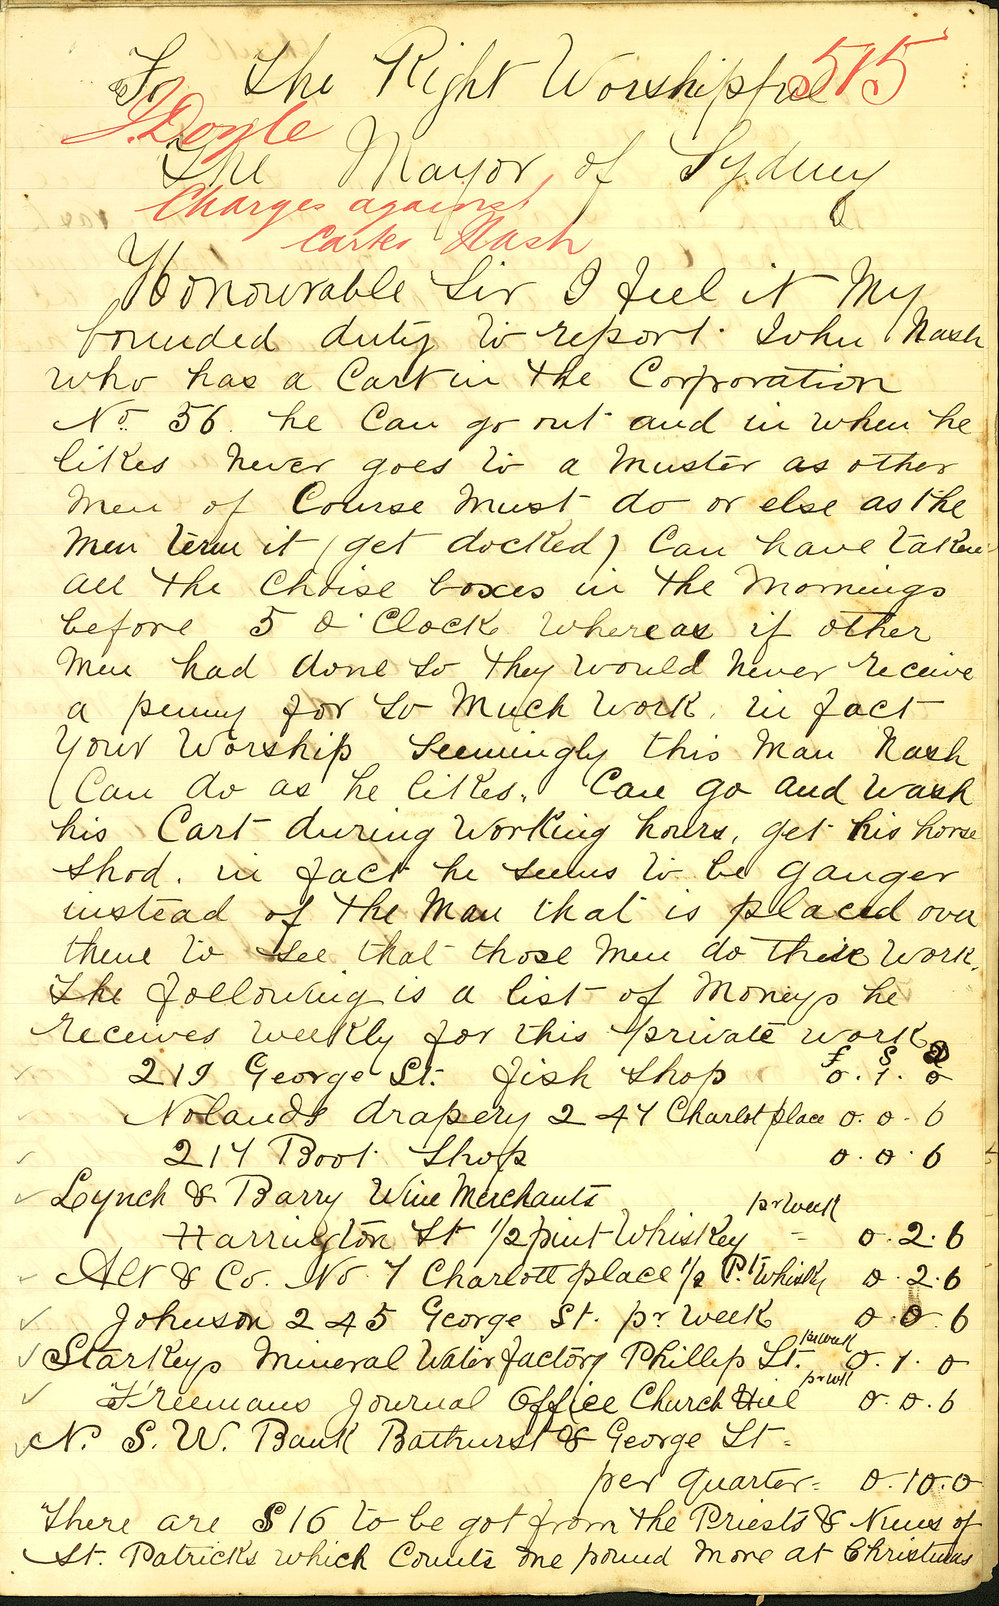 To The Right Worshipful
515
J. Doyle
The Mayor of Sydney
Charges against
Carter Nash
Honourable Sir I feel it My
bounded duty to report John Nash
who has a Cart in the Corporation
No. 56. he Can go out and in when he
likes never goes to a Muster as other
Men of Course Must do or else as the
Men term it (get docked) Can have taken
all the Choise boxes in the Mornings
before 5 O'Clock whereas if other
Men had done so they would never receive
a penny for so Much work. in fact
Your Worship Seemingly this Man Nash
Can do as he likes. Can go and wash
his Cart during working hours, get his horse
shod. in fact he seems to be ganger
instead of the Man that is placed over
them to see that those Men do their work.
The following is a list of Moneys he
receives weekly for this private work
£ S D
219 George St. fish shop 0. 1. 0
Nolands drapery 247 Charlot place 0. 0. 6
217 Boot Shop 0. 0. 6
Lynch & Barry Wine Merchants
pr week
Harrington St 1/2 pint Whiskey 0. 2. 6
Alt & Co. No. 7 Charlott place 1/2 Pt. Whisky 0. 2. 6
Johnson 245 George St. pr week 0. 0. 6
Starkeys Mineral Water factory Phillip St. pr week 0. 1. 0
Freemans Journal Office Church Hill pr wk 0. 0. 6
N. S. W. Bank Bathurst & George St.
per quarter = 0. 10. 0
There are S16 to be got from the Priests & Nuns of
St. Patricks which Counts one pound more at Christmas